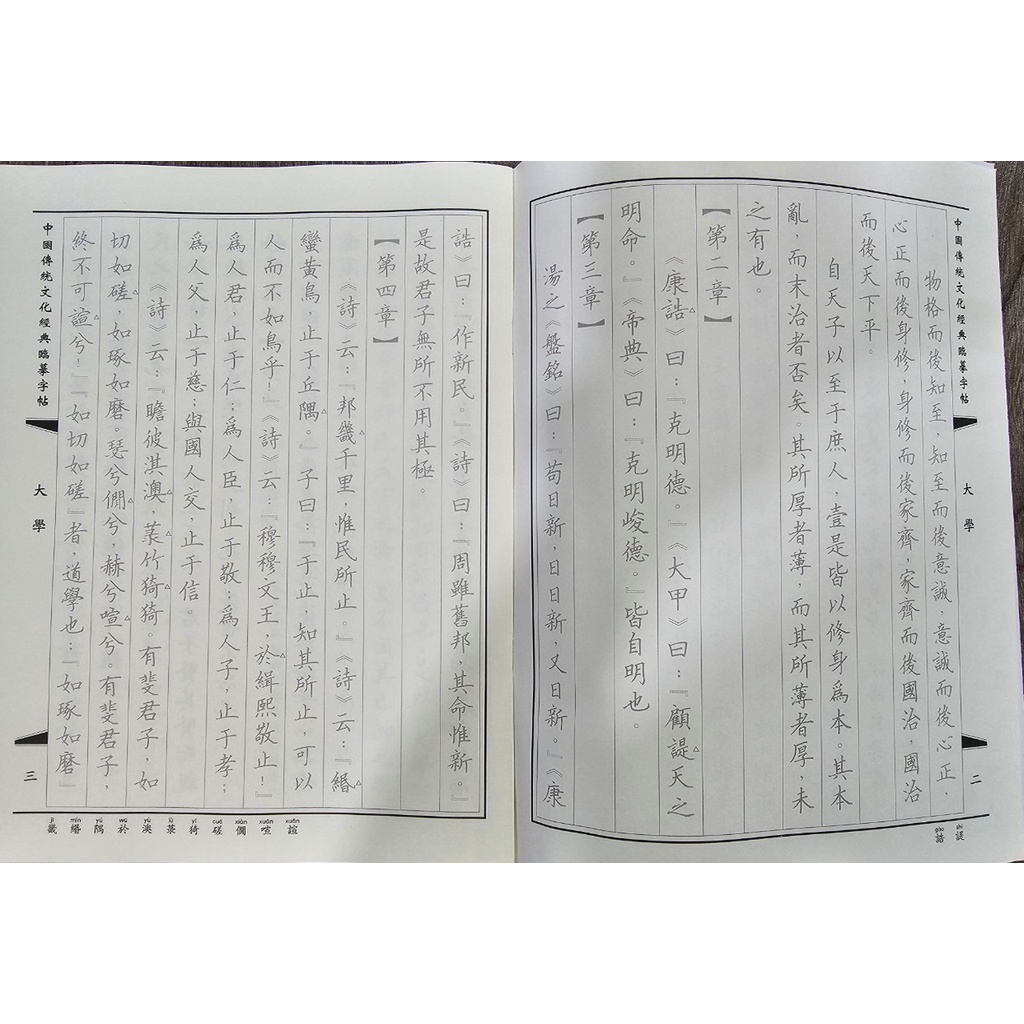 中國傳統文化經典臨摹字帖
大學
二
物格而後知至，知至而後意誠，意誠而後心正，
心正而後身修，身修而後家齊，家齊而後國治，國治
而後天下平。
自天子以至于庶人，壹是皆以修身爲本。其本
亂，而末治者否矣。其所厚者薄，而其所薄者厚，未
之有也。
【第二章】
《康誥》曰：『克明德。』《大甲》曰：『顧諟天之
明命。』《帝典》曰：『克明峻德。』皆自明也。
【第三章】
湯之《盤銘》曰：『苟日新，日日新，又日新。』《康
gào shì
誥 諟
誥》曰：『作新民。』《詩》曰：『周雖舊邦，其命惟新。』
是故君子無所不用其極。
【第四章】
《詩》云：『邦畿千里，惟民所止。』《詩》云：『緡
蠻黃鳥，止于丘隅。』子曰：『于止，知其所止，可以
人而不如鳥乎！』《詩》云：『穆穆文王，於緝熙敬止！』
爲人君，止于仁；爲人臣，止于敬；爲人子，止于孝；
爲人父，止于慈；與國人交，止于信。
《詩》云：『瞻彼淇澳，菉竹猗猗。有斐君子，如
切如磋，如琢如磨。瑟兮僩兮，赫兮喧兮。有斐君子，
終不可諠兮！』『如切如磋』者，道學也；『如琢如磨』
中國傳統文化經典臨摹字帖
大學
三
jī mín yú wū yù lù yī cuō xiàn xuān xuān
畿 緡 隅 於 澳 菉 猗 磋 僩 喧 諠